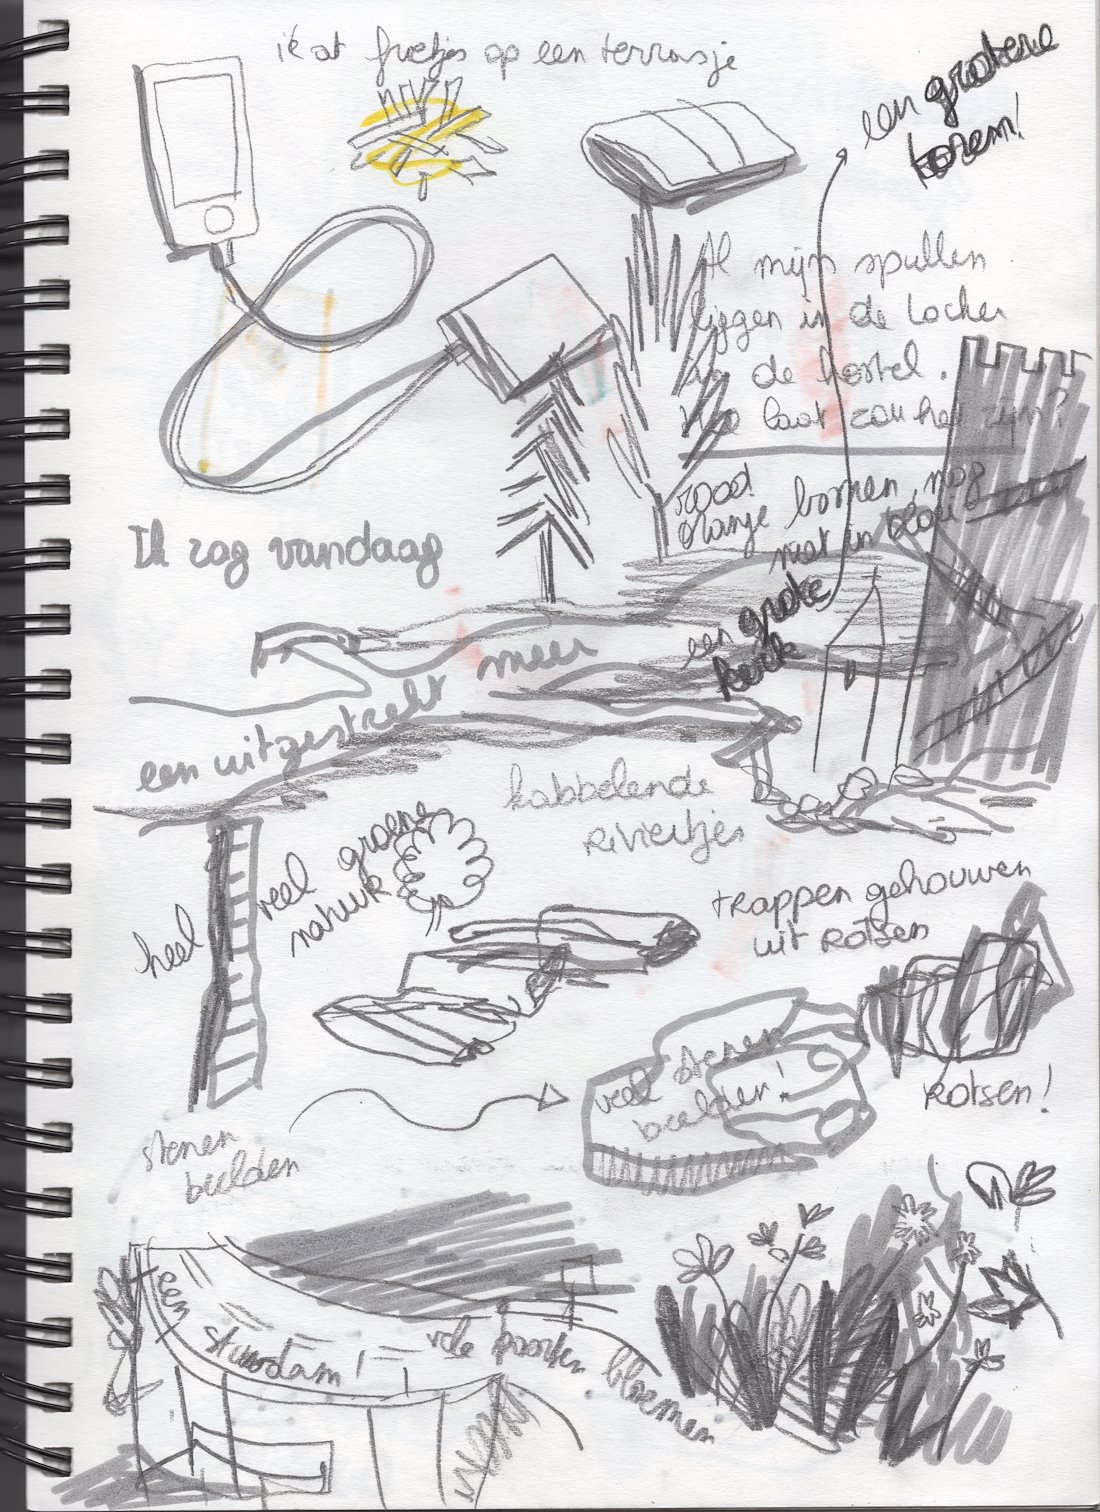 ik at frietjes op een terrasje
een grotere
toren!
Al mijn spullen
liggen in de locker
in de hostel.
Hoe laat zou het zijn?
rood!
oranje bomen, nog
niet in blauw
Ik zag vandaag
een grote
kerk
een uitgestrekt meer
kabbelende
riviertjes
heel veel groene
natuur
trappen gehouwen
uit rotsen
veel stenen
beelden!
rotsen!
stenen
beelden
een
stuwdam!
vele soorten bloemen